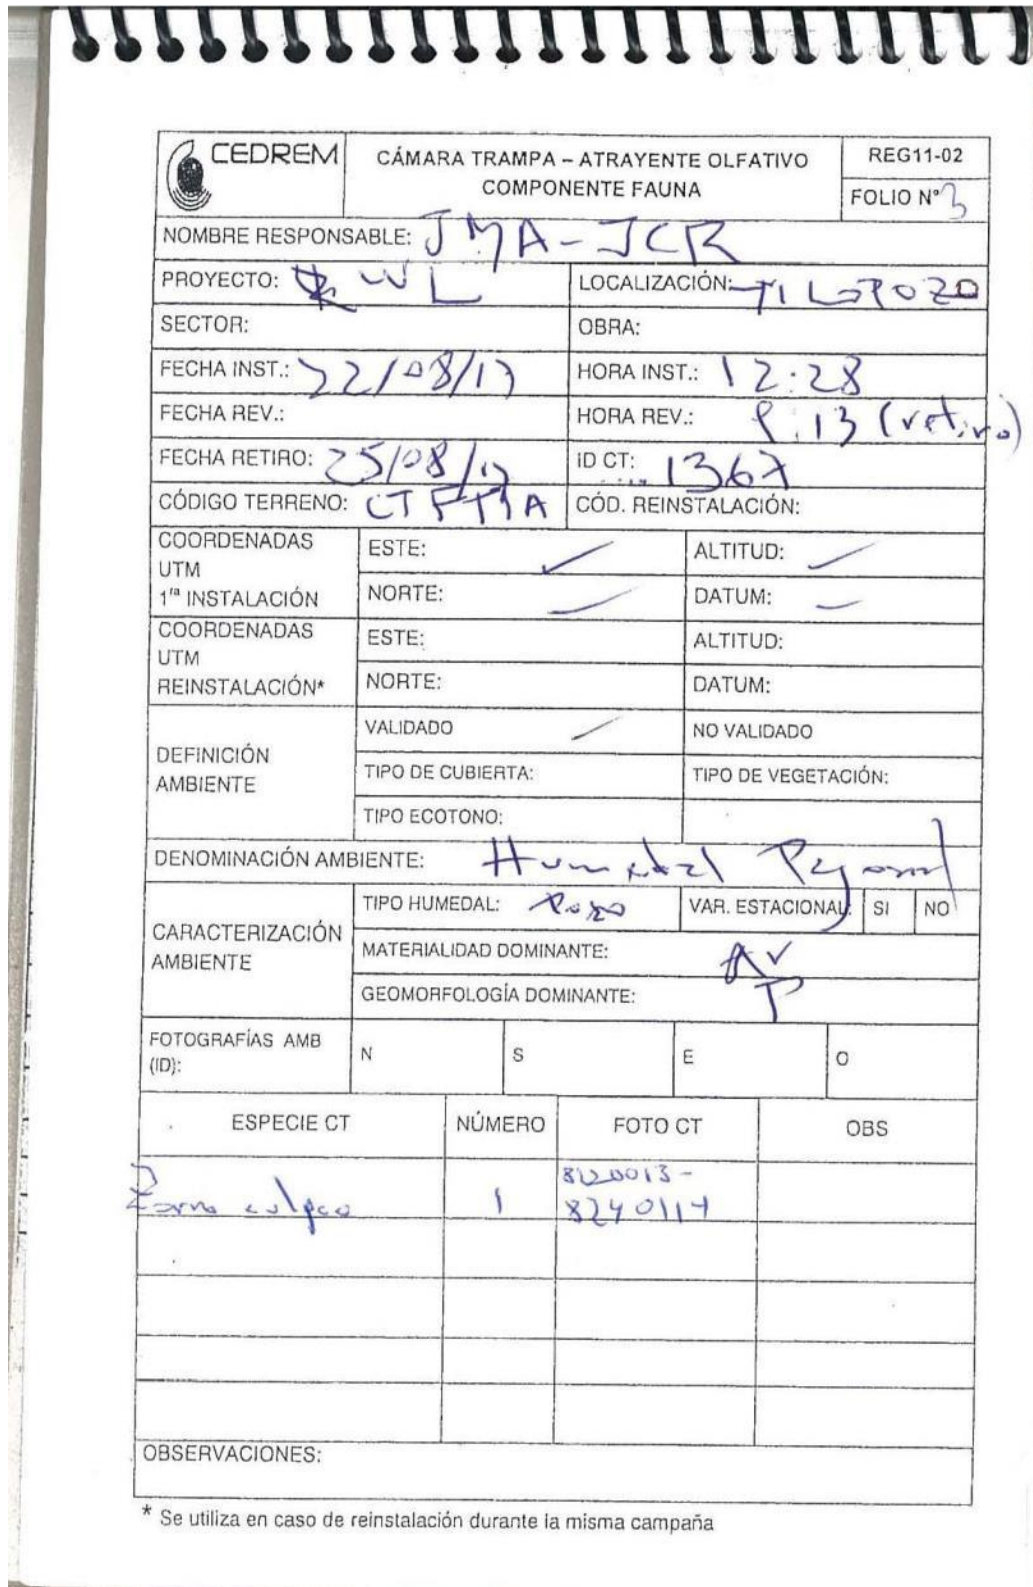 CEDREM
CÁMARA TRAMPA – ATRAYENTE OLFATIVO
COMPONENTE FAUNA
REG11-02
FOLIO N° 3
NOMBRE RESPONSABLE: JMA-JCR
PROYECTO: RWL
LOCALIZACIÓN: TILOPOZO
SECTOR:
OBRA:
FECHA INST.: 22/08/17
HORA INST.: 12:28
FECHA REV.:
HORA REV.: 9:13 (retiro)
FECHA RETIRO: 25/08/17
ID CT: 1367
CÓDIGO TERRENO: CTFT1A
CÓD. REINSTALACIÓN:
COORDENADAS
UTM
1ra INSTALACIÓN
ESTE:
ALTITUD:
NORTE:
DATUM:
COORDENADAS
UTM
REINSTALACIÓN*
ESTE:
ALTITUD:
NORTE:
DATUM:
DEFINICIÓN
AMBIENTE
VALIDADO
NO VALIDADO
TIPO DE CUBIERTA:
TIPO DE VEGETACIÓN:
TIPO ECOTONO:
DENOMINACIÓN AMBIENTE: Humedal Pajonal
CARACTERIZACIÓN
AMBIENTE
TIPO HUMEDAL: Pozo
VAR. ESTACIONAL: SI NO
MATERIALIDAD DOMINANTE: AV
GEOMORFOLOGÍA DOMINANTE: P
FOTOGRAFÍAS AMB
(ID):
N S E O
ESPECIE CT NÚMERO FOTO CT OBS
Zorro culpeo 1
8240114
OBSERVACIONES:
* Se utiliza en caso de reinstalación durante la misma campaña